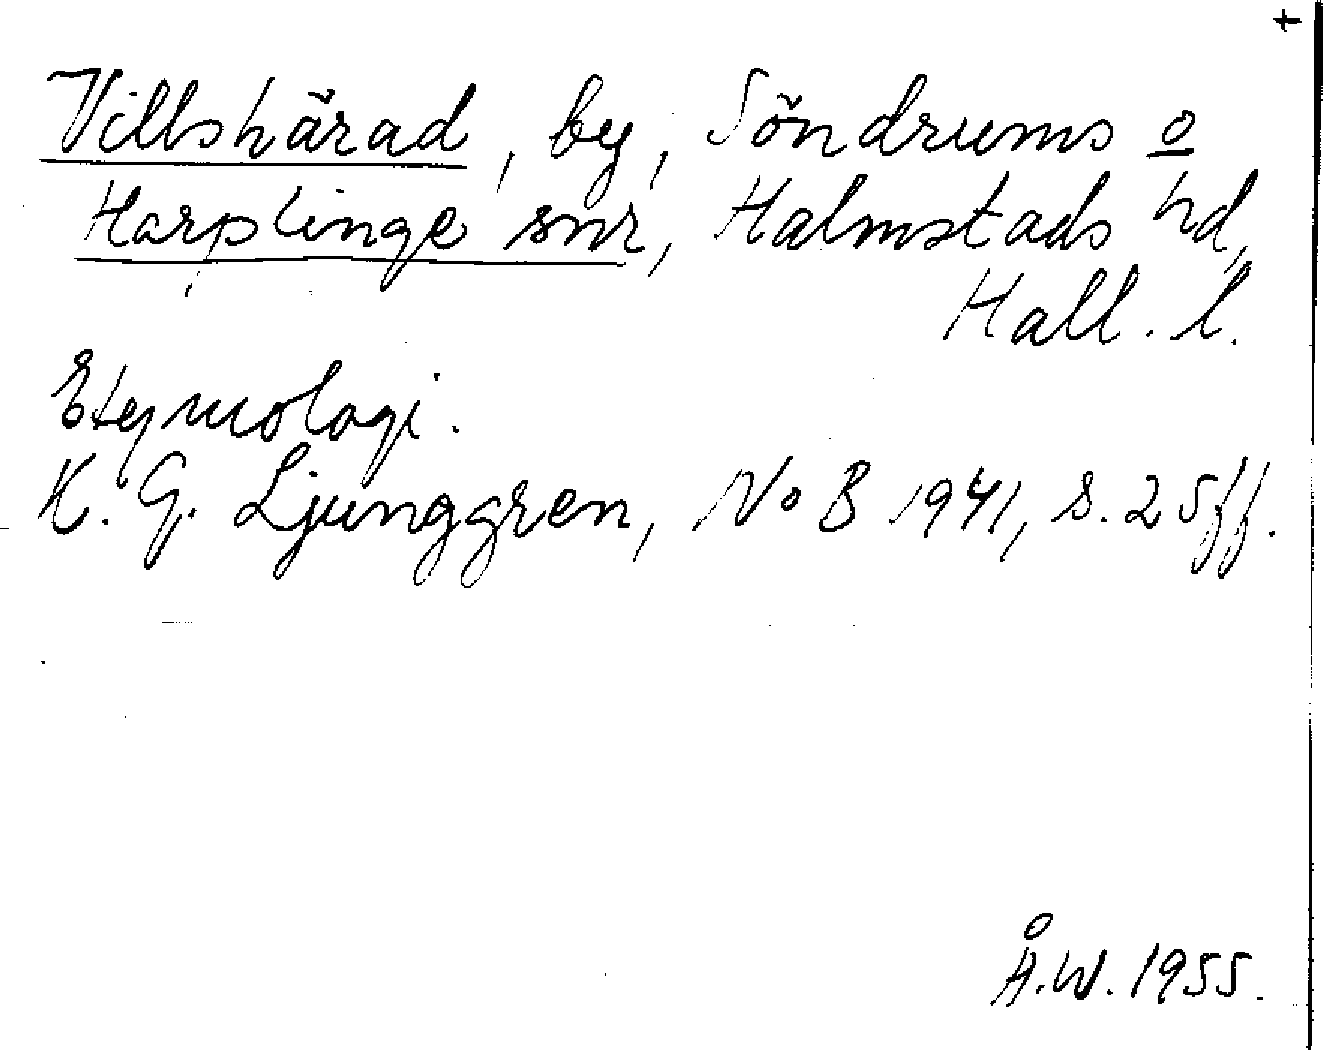 +
Villshärad, by, Söndrums o
Harplinge snr, Halmstads hd,
Hall. l.
Etymologi.
K. G. Ljunggren, NoB 1941, s. 25ff.
Å.W. 1955.